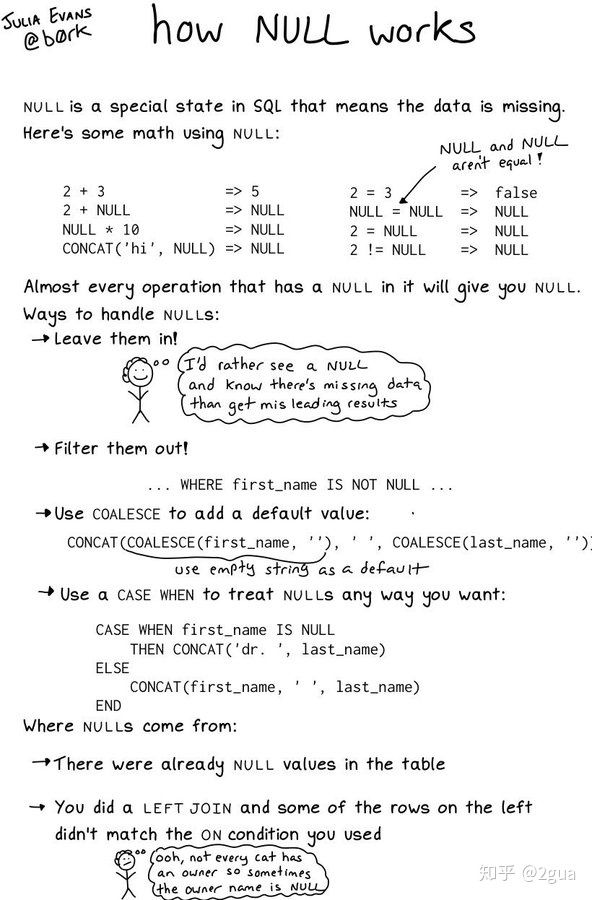 JULIA EVANS
@b0rk
how NULL works
NULL is a special state in SQL that means the data is missing.
Here's some math using NULL:
NULL and NULL
aren't equal!
2 + 3 => 5
2 = 3 => false
2 + NULL => NULL
NULL = NULL => NULL
NULL * 10 => NULL
2 = NULL => NULL
CONCAT('hi', NULL) => NULL
2 != NULL => NULL
Almost every operation that has a NULL in it will give you NULL.
Ways to handle NULLs:
→ Leave them in!
I'd rather see a NULL
and know there's missing data
than get misleading results
→ Filter them out!
... WHERE first_name IS NOT NULL ...
→ Use COALESCE to add a default value:
CONCAT(COALESCE(first_name, ''), ' ', COALESCE(last_name, ''))
use empty string as a default
→ Use a CASE WHEN to treat NULLs any way you want:
CASE WHEN first_name IS NULL
THEN CONCAT('dr. ', last_name)
ELSE
CONCAT(first_name, ' ', last_name)
END
Where NULLs come from:
→ There were already NULL values in the table
→ You did a LEFT JOIN and some of the rows on the left
didn't match the ON condition you used
ooh, not every cat has
an owner so sometimes
the owner name is NULL
知乎 @2gua